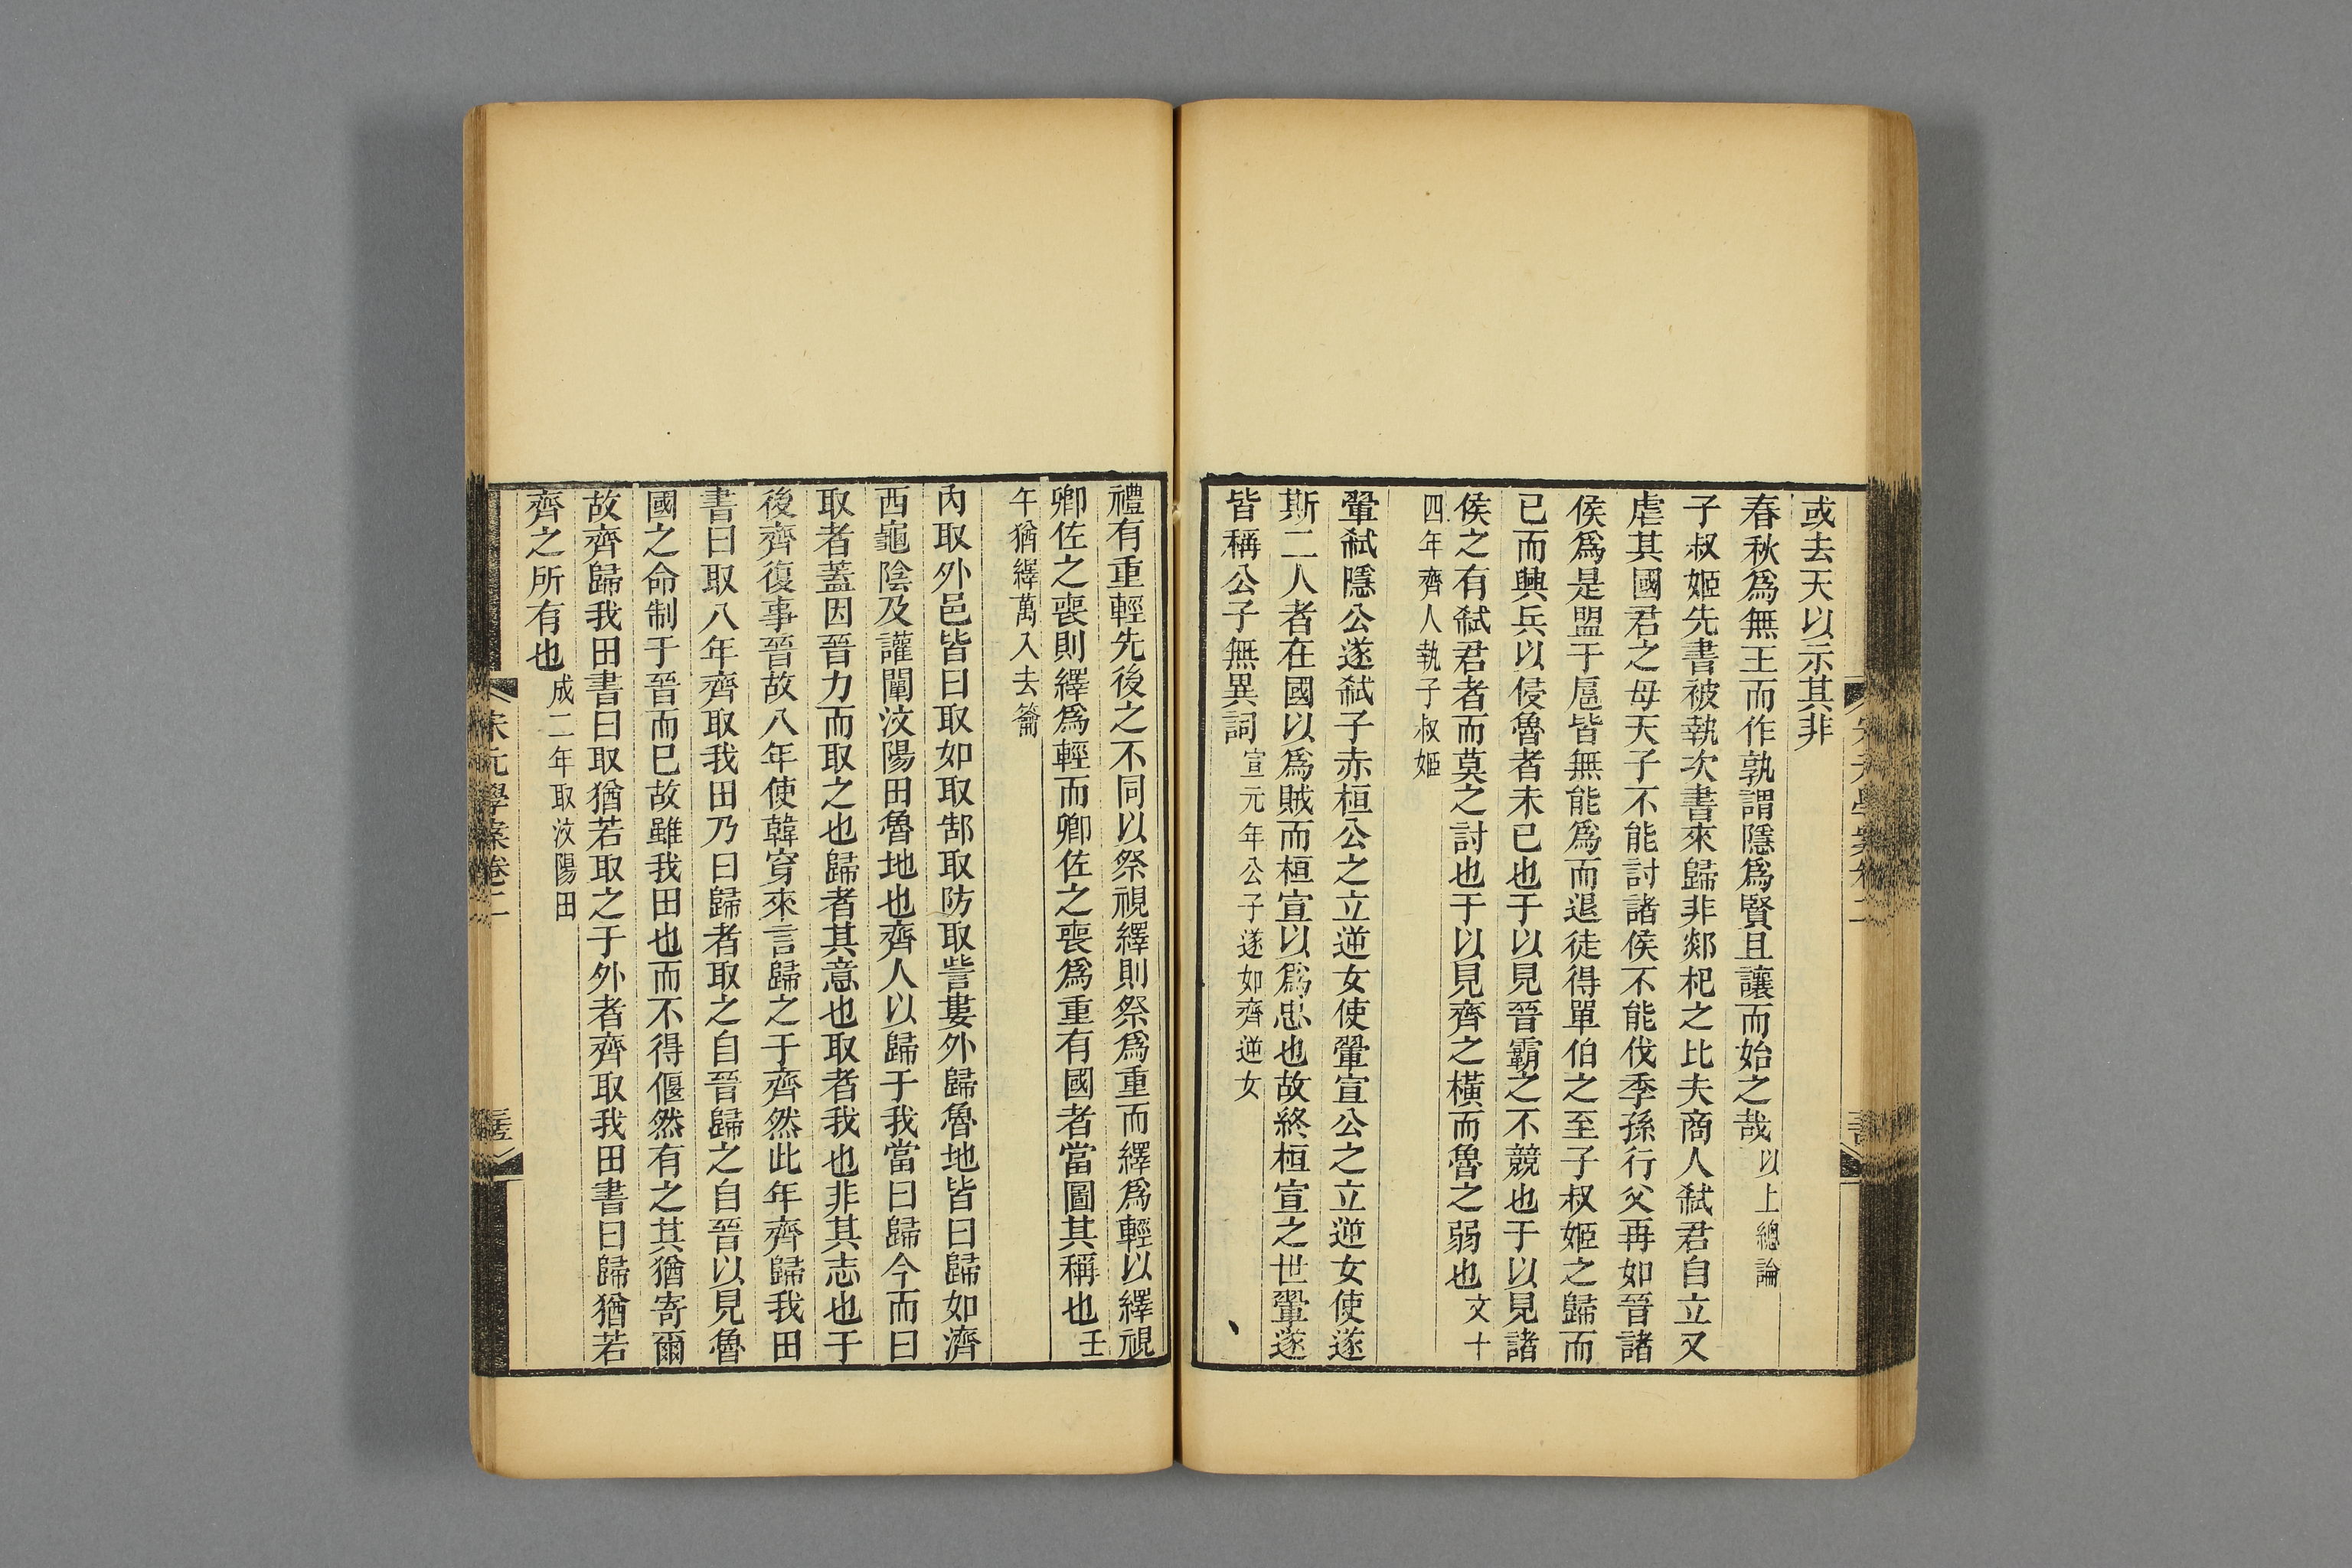 或去天以示其非
春秋爲無王而作孰謂隱爲賢且讓而始之哉以上總論
子叔姬先書被執次書來歸非郯杞之比夫商人弒君自立又
虐其國君之母天子不能討諸侯不能伐季孫行父再如晉諸
侯爲是盟于扈皆無能爲而退徒得單伯之至子叔姬之歸而
已而興兵以侵魯者未已也于以見晉霸之不競也于以見諸
侯之有弒君者而莫之討也于以見齊之橫而魯之弱也文十
四年齊人執子叔姬
翬弒隱公遂弒子赤桓公之立逆女使翬宣公之立逆女使遂
斯二人者在國以爲賊而桓宣以爲忠也故終桓宣之世翬遂
皆稱公子無異詞宣元年公子遂如齊逆女
禮有重輕先後之不同以祭視繹則祭爲重而繹爲輕以繹視
卿佐之喪則繹爲輕而卿佐之喪爲重有國者當圖其稱也壬
午猶繹萬入去籥
內取外邑皆曰取如取郜取防取訾婁外歸魯地皆曰歸如濟
西龜陰及讙闡汶陽田魯地也齊人以歸于我當曰歸今而曰
取者蓋因晉力而取之也歸者其意也取者我也非其志也于
後齊復事晉故八年使韓穿來言歸之于齊然此年齊歸我田
書曰取八年齊取我田乃曰歸者取之自晉歸之自晉以見魯
國之命制于晉而已故雖我田也而不得偃然有之其猶寄爾
故齊歸我田書曰取猶若取之于外者齊取我田書曰歸猶若
齊之所有也成二年取汶陽田
宋元學案卷二